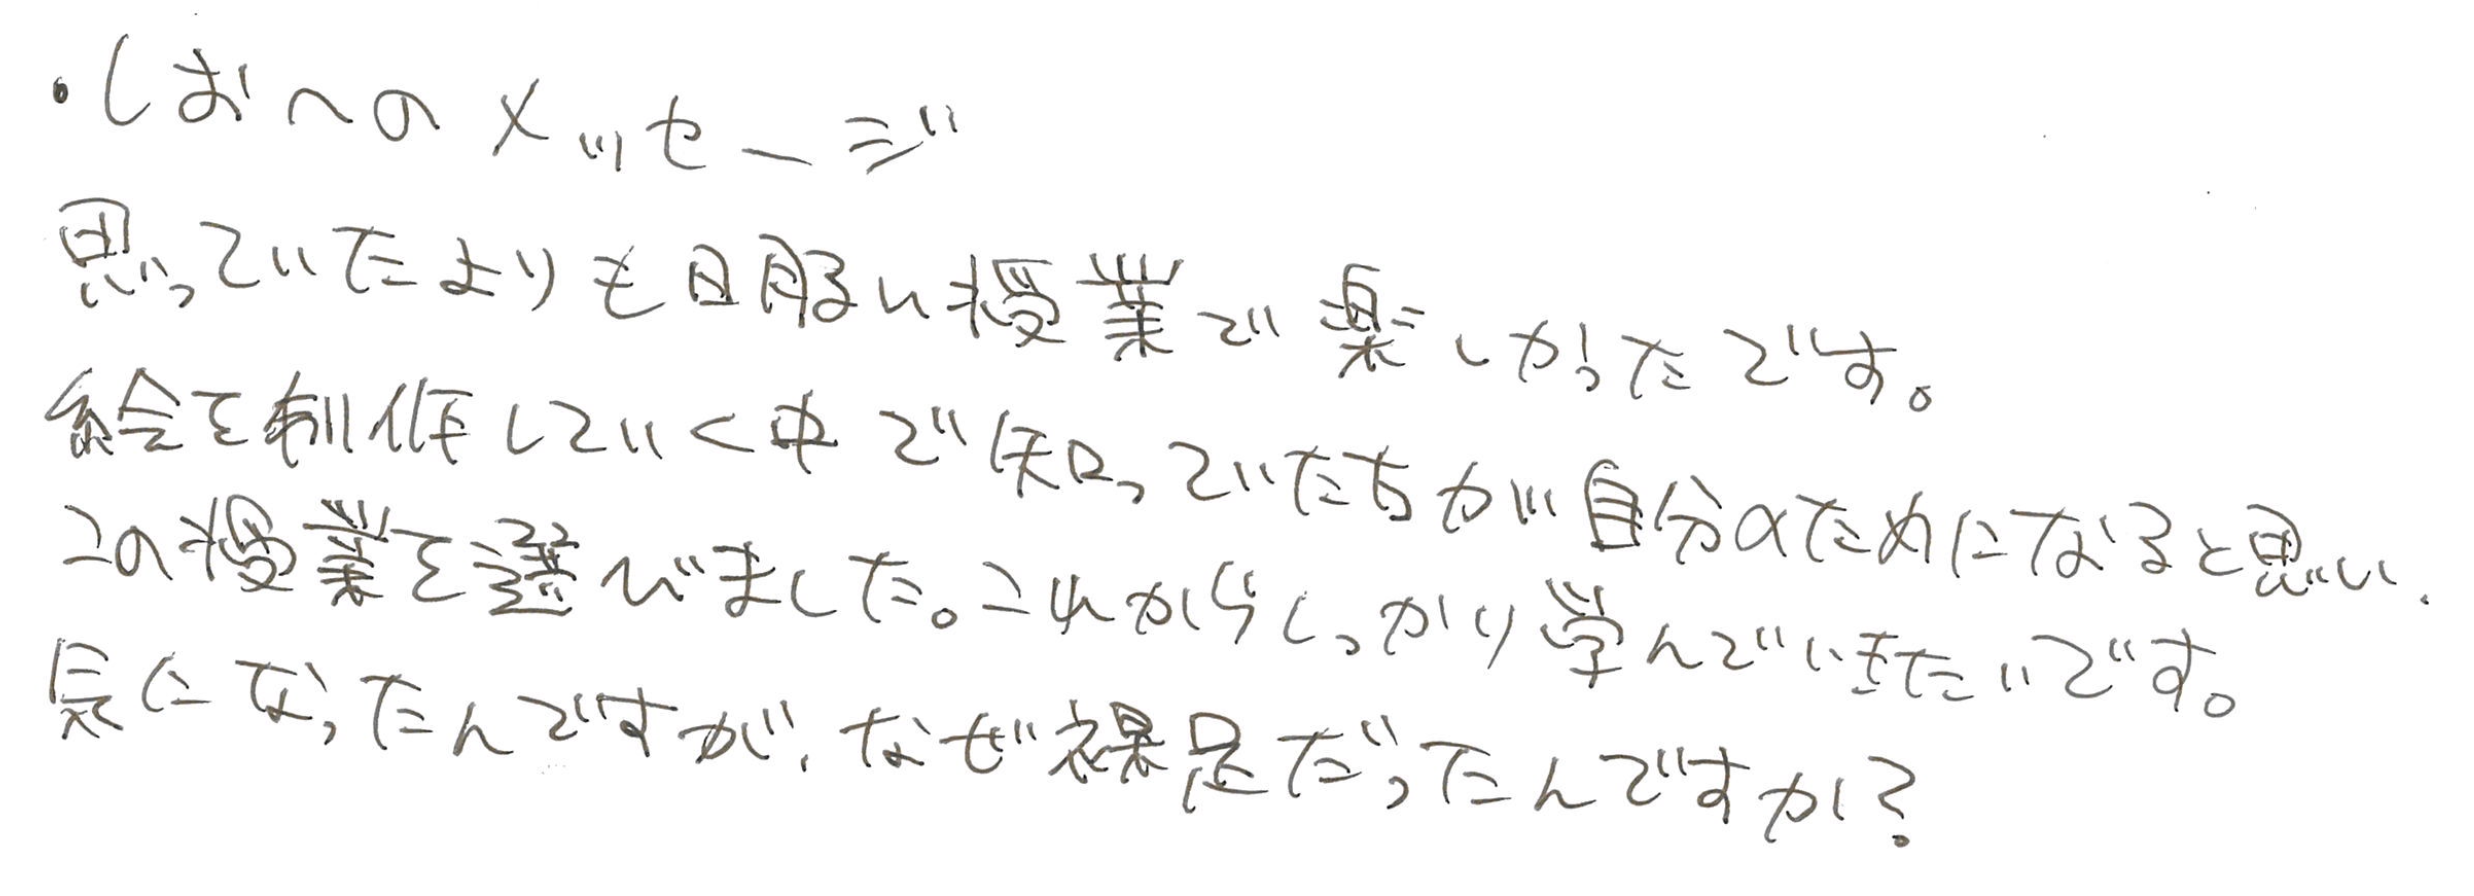 ・しおへのメッセージ
思っていたよりも明るい授業で楽しかったです。
絵を制作していく中で知っていた方が自分のためになると思い、
この授業を選びました。これからしっかり学んでいきたいです。
気になったんですが、なぜ裸足だったんですか?